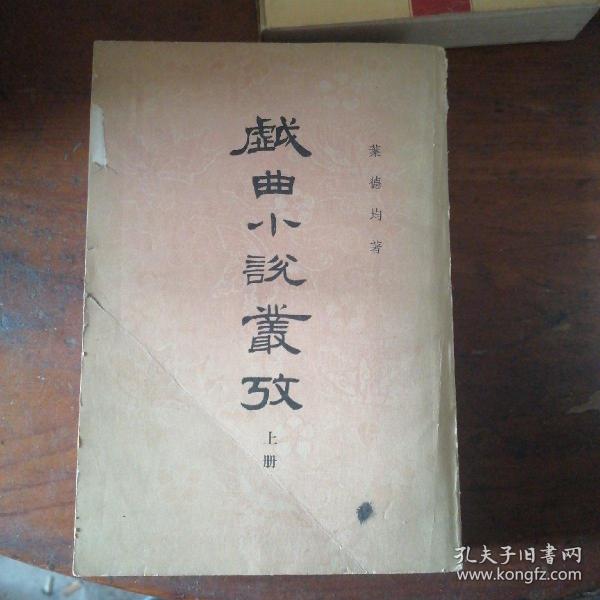 葉德均著
戯曲小説叢攷
上册
孔夫子旧書网
www.kongfz.com